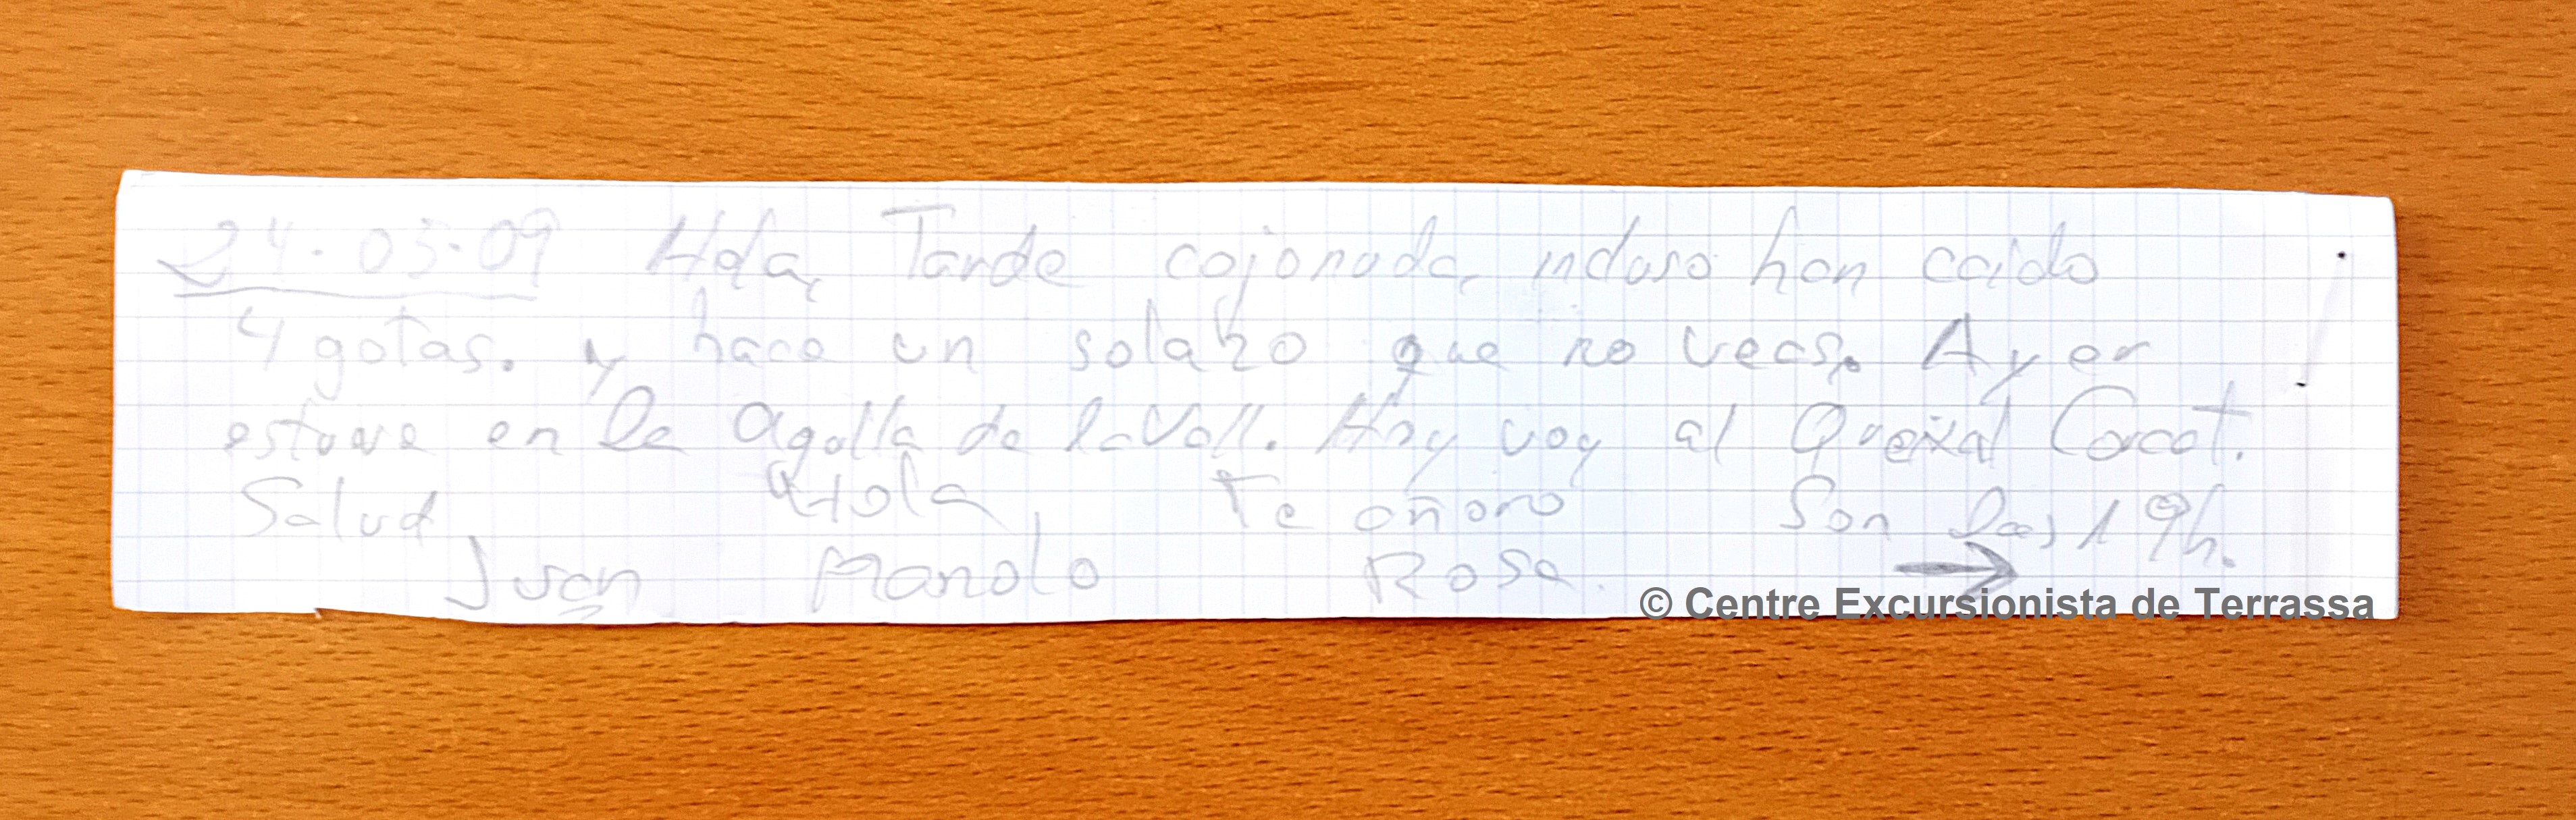 24·05·09 Hola, Tarde cojonuda, incluso han caido
4 gotas. y hace un solazo que no veas. Ayer
estuve en la agulla de la Vall. Hoy voy al Queixal Corcat.
Salud Hola, Te añoro Son las 19h.
Juan Manolo Rosa. →
© Centre Excursionista de Terrassa